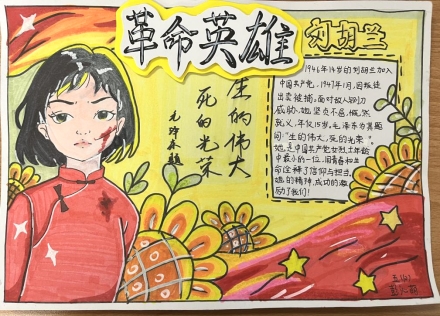 革命英雄
刘胡兰
生的伟大
死的光荣
毛泽东题
1946年14岁的刘胡兰加入
中国共产党,1947年1月,因叛徒
出卖被捕,面对敌人铡刀
威胁,她坚贞不屈,慨然
就义,年仅15岁。毛泽东为其题
词:"生的伟大,死的光荣"
她是中国共产党女烈士年龄
中最小的一位,用青春和生
命诠释了信仰与担当,
她的精神,成功的激
励了我们!